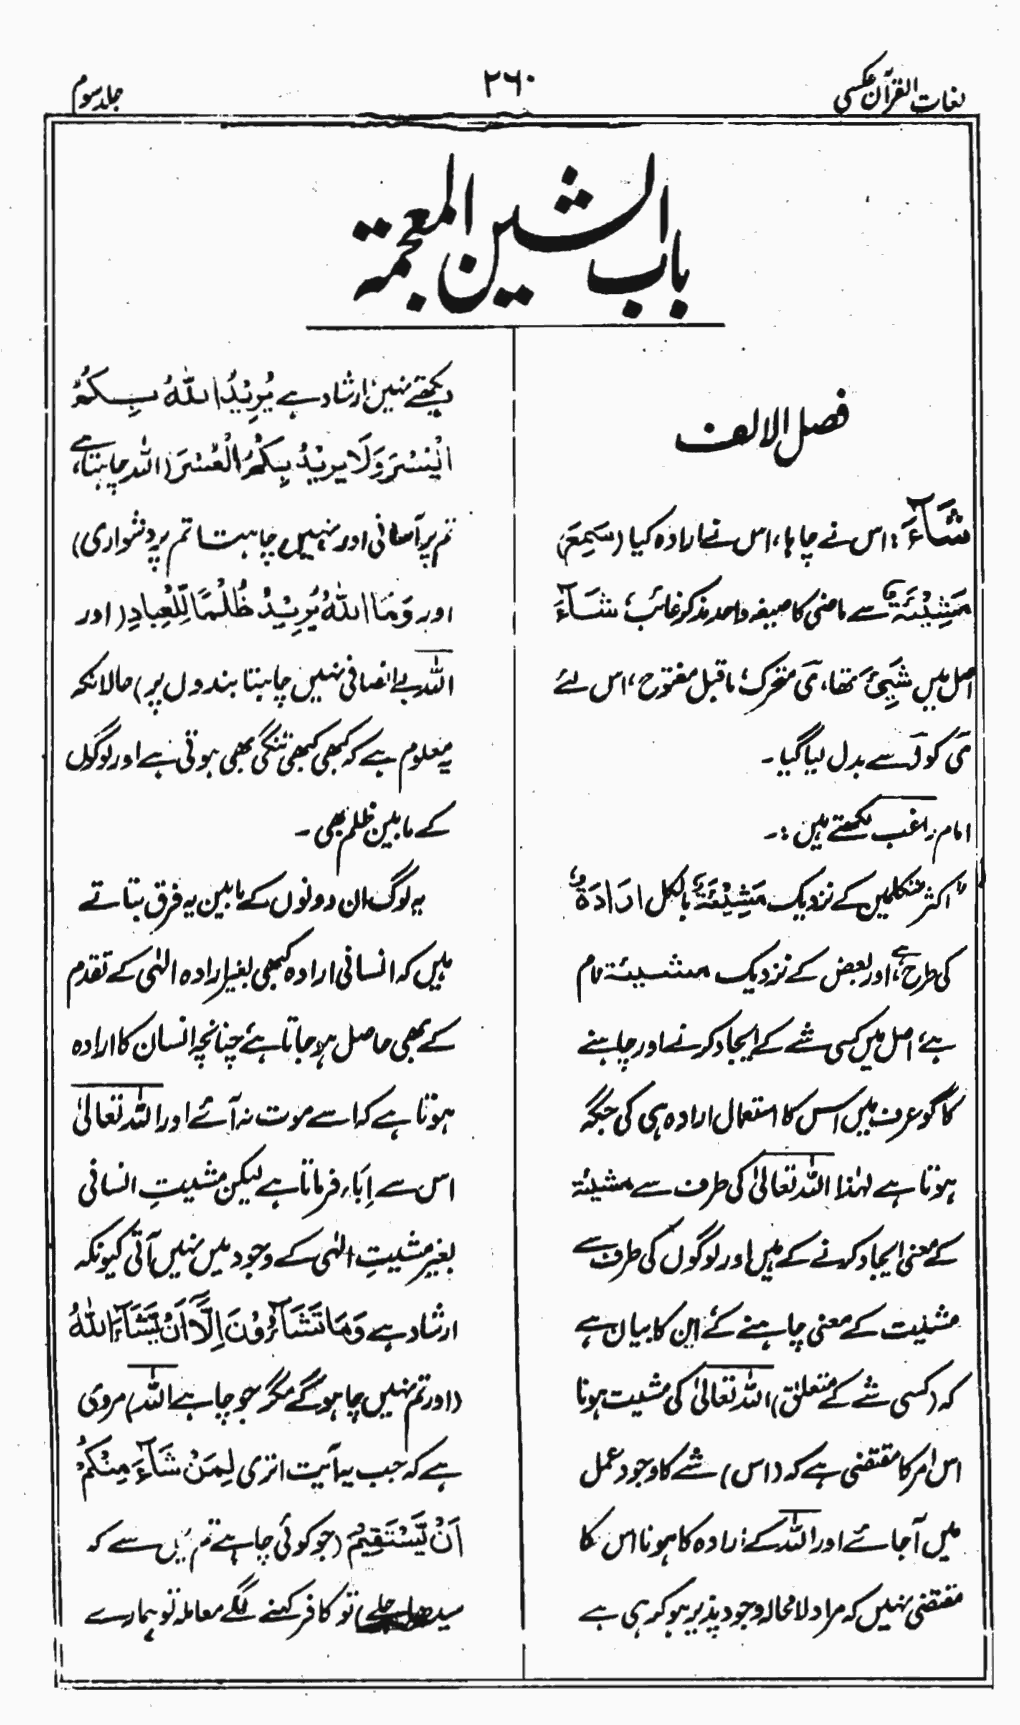 لغات القرآن عکسی
۲۶۰
جلد سوم
باب الشین المعجمة
فصل الالف
شَآءَ : اس نے چاہا، اس نے ارادہ کیا (سَمِعَ)
مَشِیْئَةٌ سے ماضی کا صیغہ واحد مذکر غائب، شَآءَ
اصل میں شَیِئَ تھا، ی متحرک، ماقبل مفتوح، اس لئے
ی کو ا سے بدل لیا گیا۔
امام راغب لکھتے ہیں :۔
"اکثر متکلمین کے نزدیک مَشِیْئَةٌ بالکل اِرَادَةٌ
کی طرح ہے، اور بعض کے نزدیک مشیئة نام
ہے، اصل میں کسی شے کے ایجاد کرنے اور چاہنے
کا گو عرف میں اس کا استعمال ارادہ ہی کی جگہ
ہوتا ہے لہٰذا اللہ تعالیٰ کی طرف سے مشیئة
کے معنی ایجاد کرنے کے ہیں اور لوگوں کی طرف سے
مشیت کے معنی چاہنے کے، ان کا بیان ہے
کہ (کسی شے کے متعلق) اللہ تعالیٰ کی مشیت ہونا
اس امر کا مقتضی ہے کہ (اس) شے کا وجود عمل
میں آجائے اور اللہ کے ارادہ کا ہونا اس کا
مقتضی نہیں کہ مراد لامحالہ وجود پذیر ہو کر ہی رہے
دیکھتے نہیں ارشاد ہے یُرِیْدُ اللهُ بِکُمُ
الْیُسْرَ وَلَا یُرِیْدُ بِکُمُ الْعُسْرَ (اللہ چاہتا ہے،
تم پر آسانی اور نہیں چاہتا تم پر دشواری)
اور وَمَا اللهُ یُرِیْدُ ظُلْمًا لِّلْعِبَادِ (اور
اللہ بے انصافی نہیں چاہتا بندوں پر) حالانکہ
یہ معلوم ہے کہ کبھی کبھی تنگی بھی ہوتی ہے اور لوگوں
کے مابین ظلم بھی۔
یہ لوگ ان دونوں کے مابین یہ فرق بتاتے
ہیں کہ انسانی ارادہ کبھی بغیر ارادہ الٰہی کے تقدم
کے بھی حاصل ہو جاتا ہے، چنانچہ انسان کا ارادہ
ہوتا ہے کہ اسے موت نہ آئے اور اللہ تعالیٰ
اس سے اِبَاء فرماتا ہے لیکن مشیتِ انسانی
بغیر مشیتِ الٰہی کے وجود میں نہیں آتی کیونکہ
ارشاد ہے وَمَا تَشَآءُوْنَ اِلَّا اَنْ یَّشَآءَ اللهُ
(اور تم نہیں چاہو گے مگر جو چاہے اللہ) مروی
ہے کہ جب یہ آیت اتری لِمَنْ شَآءَ مِنْکُمْ
اَنْ یَّسْتَقِیْمَ (جو کوئی چاہے تم میں سے کہ
سیدھا چلے) تو کافر کہنے لگے معاملہ تو ہمارے